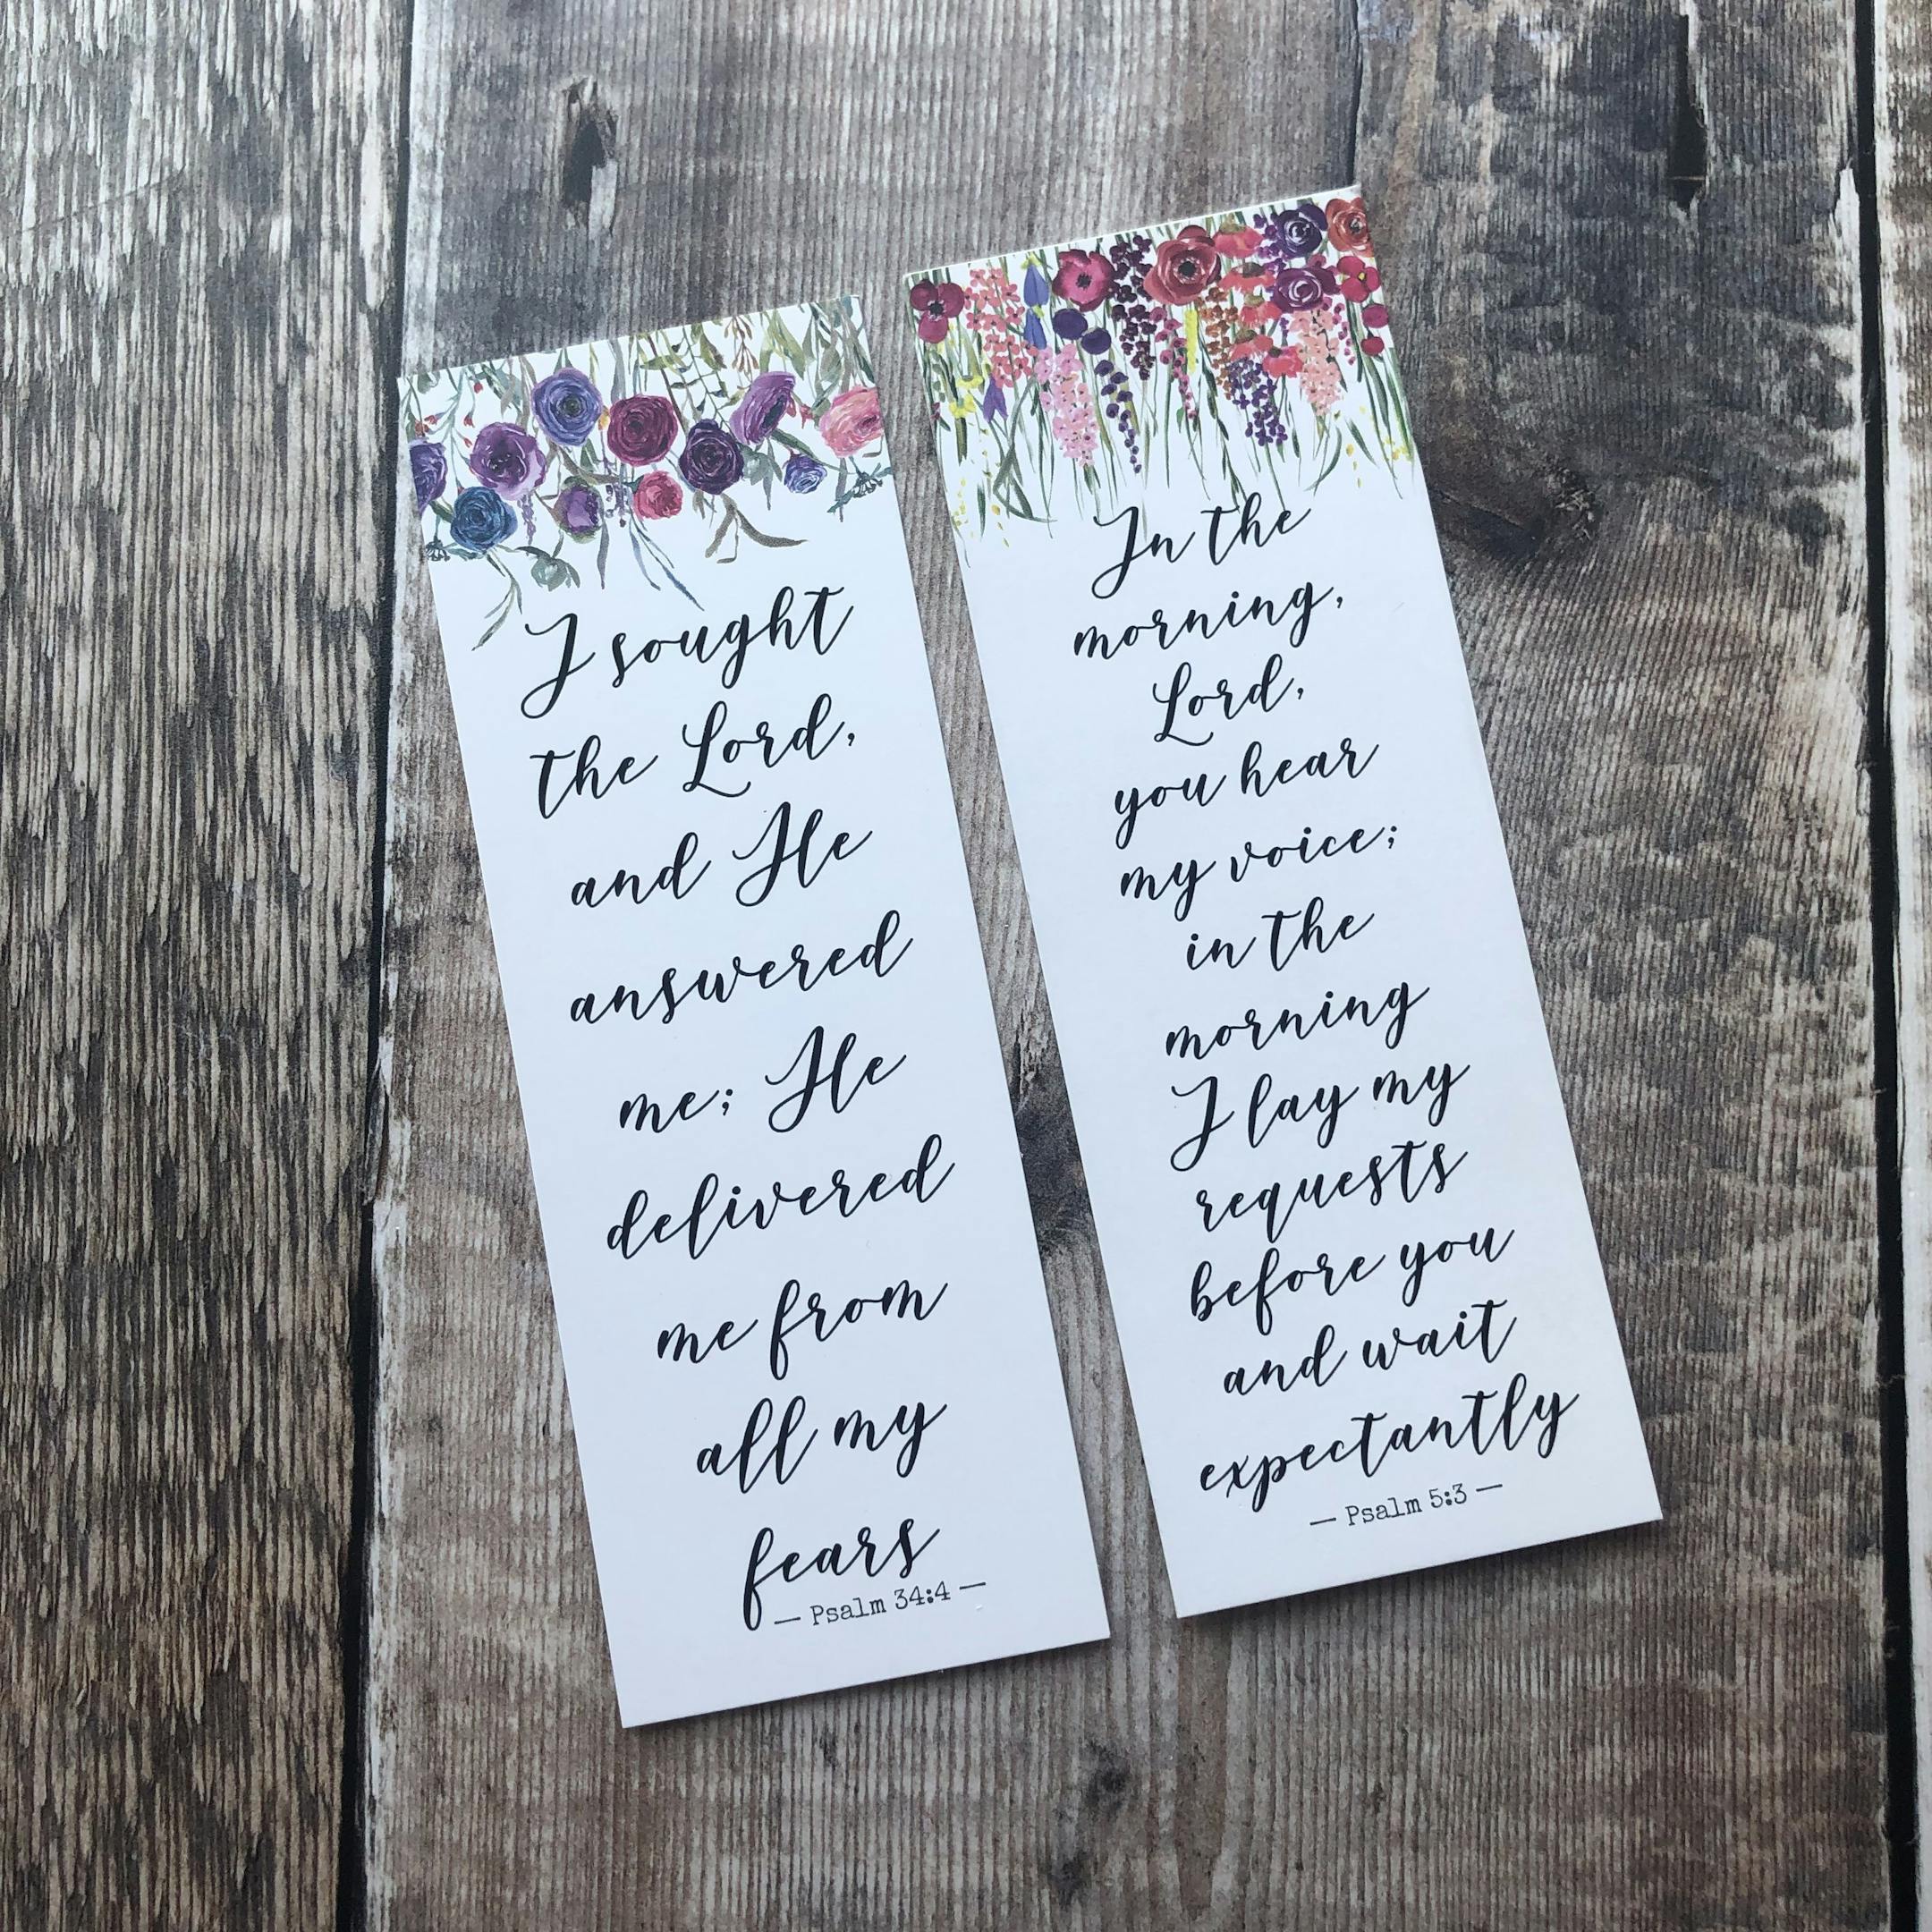 I sought
the Lord,
and He
answered
me; He
delivered
me from
all my
fears
— Psalm 34:4 —
In the
morning,
Lord,
you hear
my voice;
in the
morning
I lay my
requests
before you
and wait
expectantly
— Psalm 5:3 —